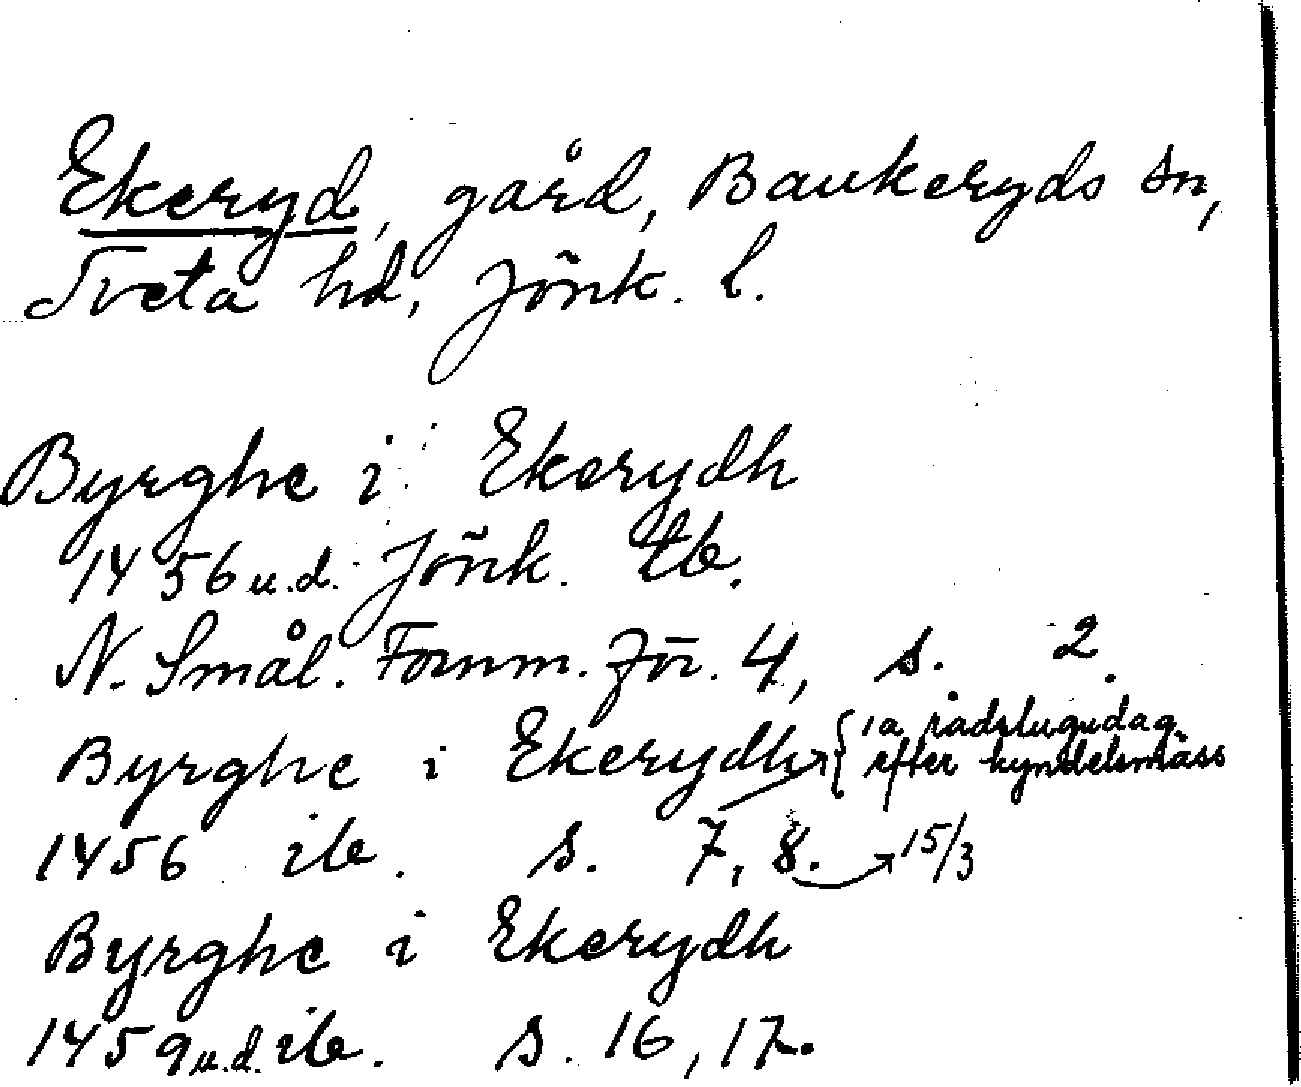 Ekeryd, gård, Bankeryds sn,
Tveta hd, Jönk. l.
Byrghe i Ekerydh
1456 u.d. Jönk. tb.
N. Smål. Fornm. för. 4, s. 2.
Byrghe i Ekerydh → { ia rådstugudag
efter kyndelsmäss
1456 ib. s. 7, 8. → 15/3
Byrghe i Ekerydh
1459 u.d. ib. s. 16, 17.